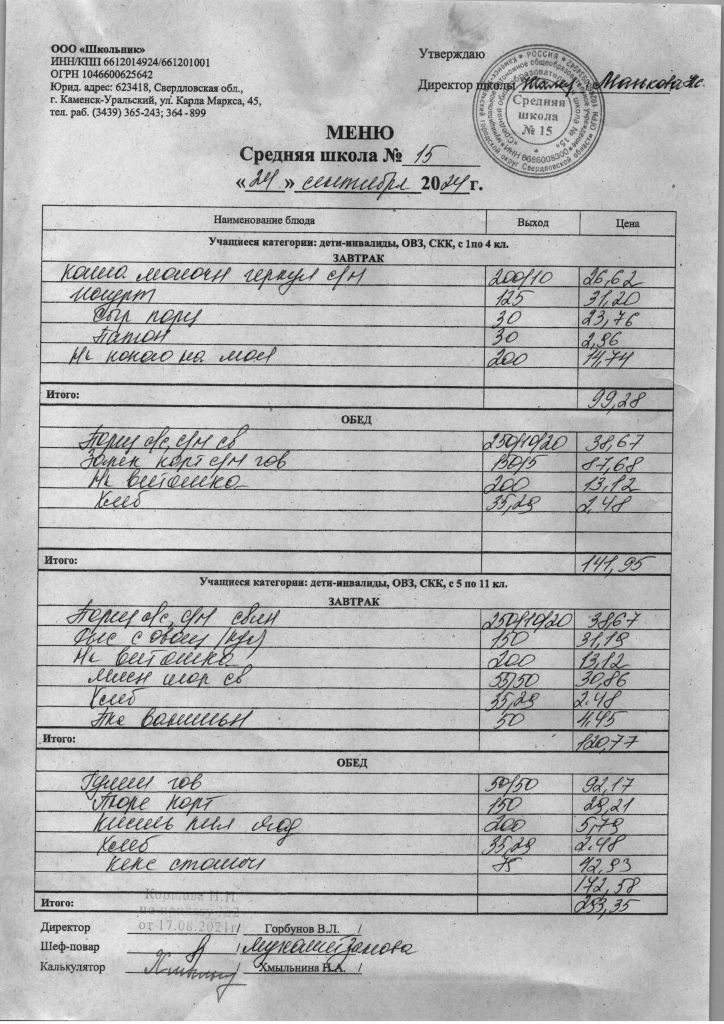 ООО «Школьник»
ИНН/КПП 6612014924/661201001
ОГРН 1046600625642
Юрид. адрес: 623418, Свердловская обл.,
г. Каменск-Уральский, ул. Карла Маркса, 45,
тел. раб. (3439) 365-243; 364 - 899
Утверждаю
Директор школы
Средняя
школа
№ 15
МЕНЮ
Средняя школа № 15
« 24 » сентября 2024 г.
Наименование блюда Выход Цена
Учащиеся категории: дети-инвалиды, ОВЗ, СКК, с 1по 4 кл.
ЗАВТРАК
Каша молочн геркул с/м 200/10 26,62
Йогурт 125 31,20
Сыр порц 30 23,76
Батон 30 2,96
Н-к какао на мол 200 14,74
Итого: 99,28
ОБЕД
250/10/20 38,67
Запек карт с/м гов 150/5 87,68
Н-к витошка 200 13,12
Хлеб 35,29 2.48
Итого: 141,95
Учащиеся категории: дети-инвалиды, ОВЗ, СКК, с 5 по 11 кл.
ЗАВТРАК
250/10/20 38,67
Рис с овощ 150 31,19
Н-к витошка 200 13,12
55/50 30,86
Хлеб 35,29 2.48
ванильн 50 4,45
Итого: 120,77
ОБЕД
Гуляш гов 50/50 92,17
Пюре карт 150 29,21
Кисель 200 5,79
Хлеб 35,29 2.48
Кекс столичн 75 42,93
172,58
Итого: 293,35
от 17.08.2021г
Директор / Горбунов В.Л. /
Шеф-повар /
Калькулятор / Хмыльнина Н.А. /